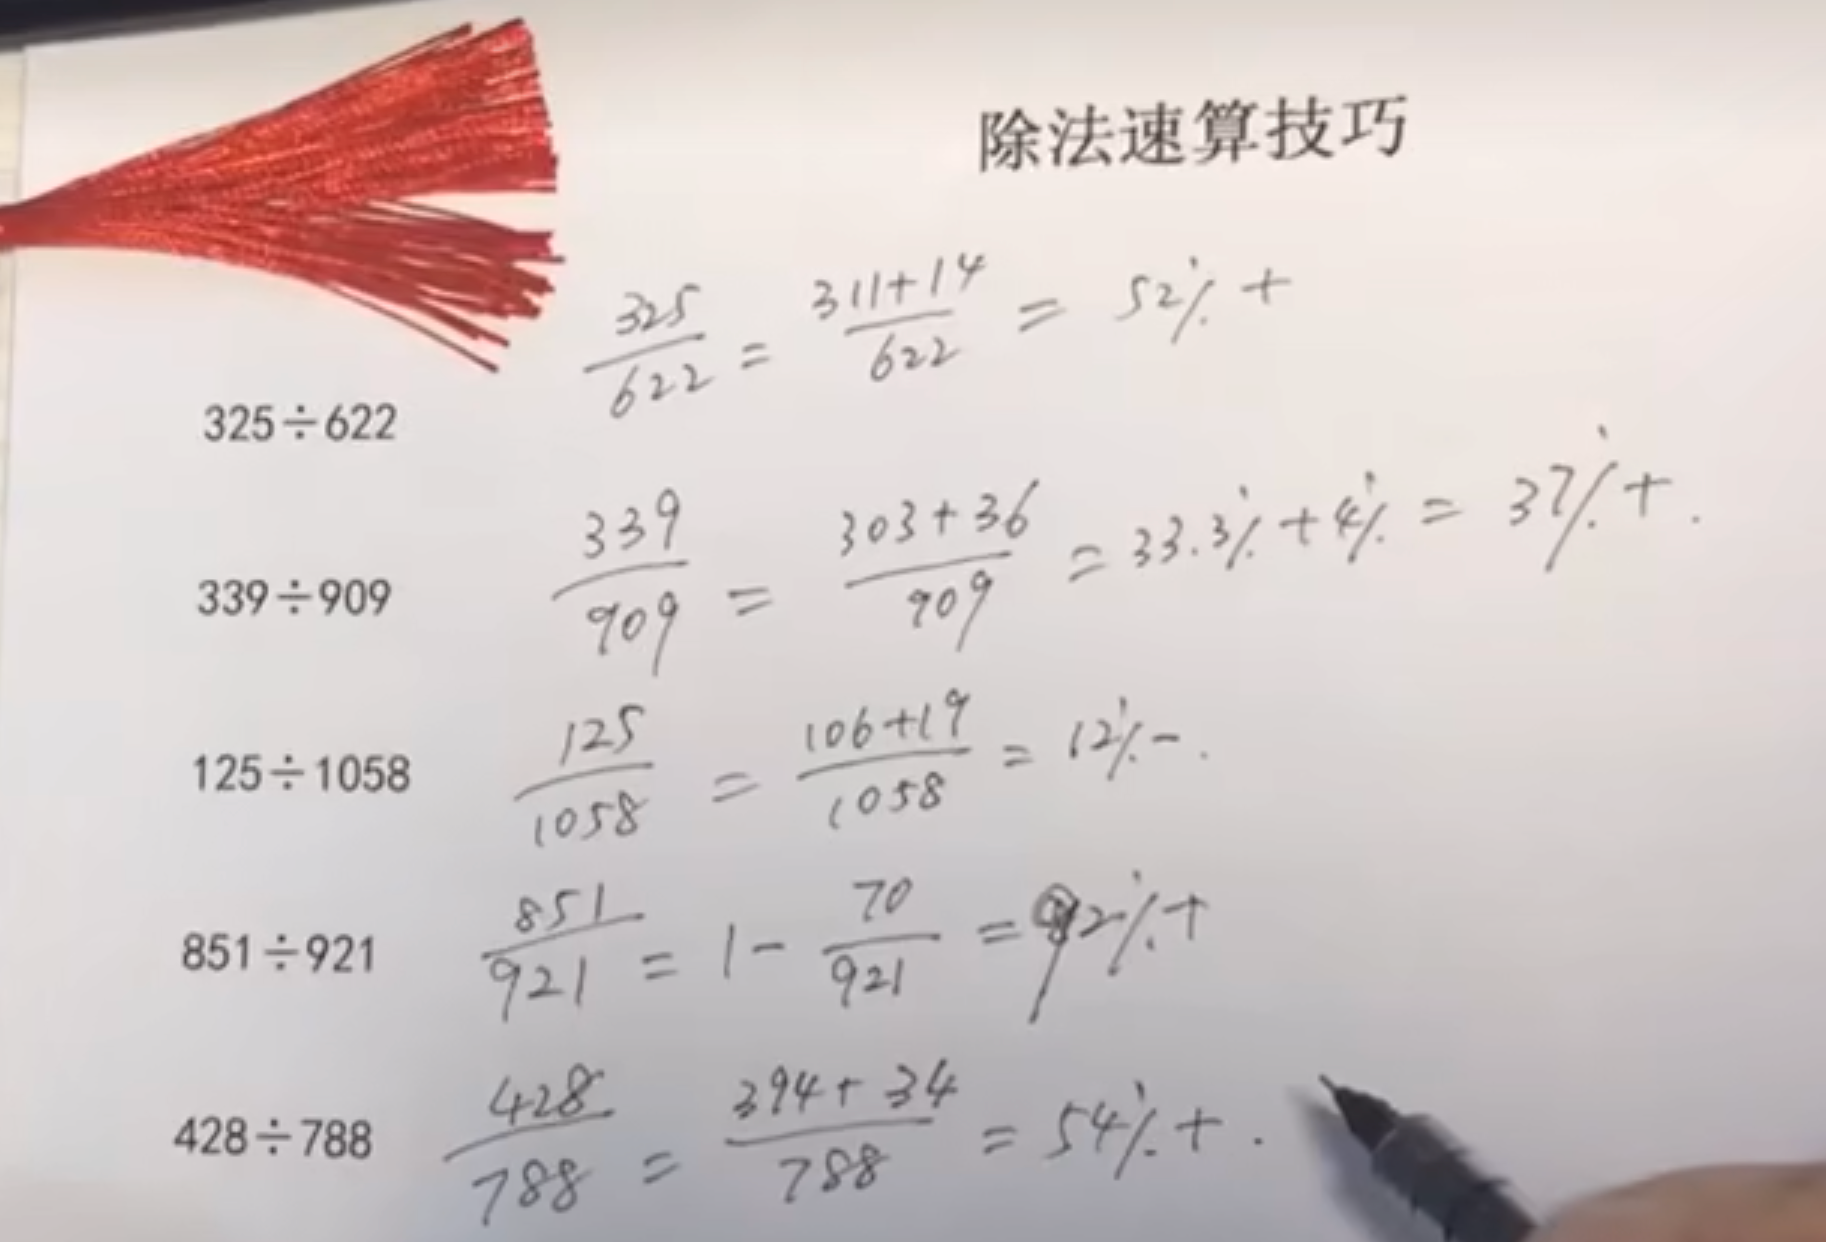 除法速算技巧
325÷622 325/622 = 311+14/622 = 52% +
339÷909 339/909 = 303+36/909 = 33.3% + 4% = 37% + .
125÷1058 125/1058 = 106+19/1058 = 12% - .
851÷921 851/921 = 1 - 70/921 = 92% +
428÷788 428/788 = 394+34/788 = 54% + .